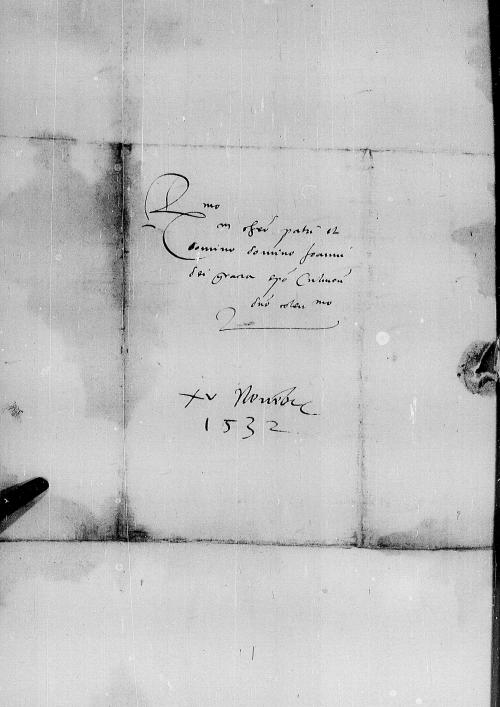 R mo
in chro patri et
domino domino Joanni
dei gracia epo Culmen
dno colen mo
xv Novēbr
1532